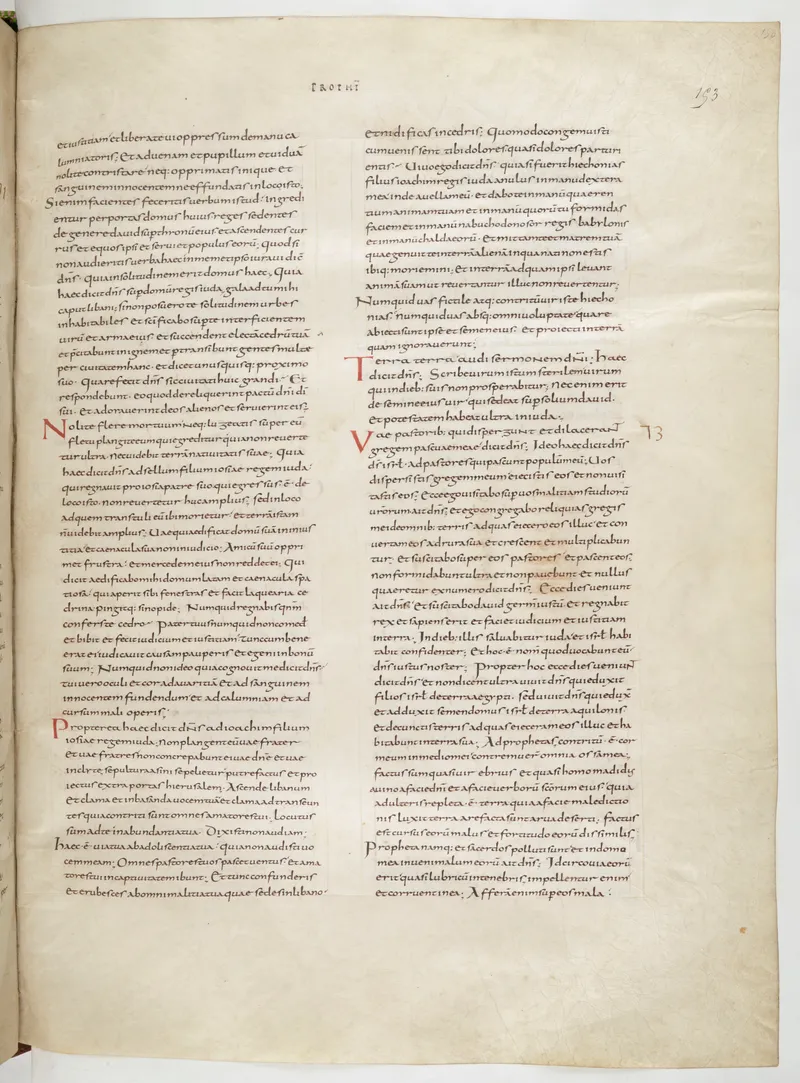 PROPHE
193
et iustitiam et liberate ui oppressum de manu ca
lumniatoris; Et aduenam et pupillum et uiduā
nolite contristare neq: opprimatis inique et
sanguinem innocentem ne effundatis in loco isto;
Si enim facientes feceritis uerbum istud ingredi
entur per portas domus huius reges sedentes
de genere dauid sup thronū eius et ascendentes cur
rus et equos ipsi et serui et populus eorū; Quod si
non audieritis uerba haec in memet ipso iuraui diē
dn̄s. quia in solitudinem erit domus haec; Quia
haec dicit dn̄s sup domū regis iuda; galaad tu mihi
caput libani; si non posuero te solitudinem urbes
inhabitabiles et sc̄ificabo sup te interficientem
uirū et arma eius et succendent electā cedrū tuā
et p̄cipitabunt in ignem et transibunt gentes multae
per ciuitatem hanc. et dicet unusquisq; proximo
suo. Quare fecit dn̄s sic ciuitati huic grandi; Et
respondebunt. eo quod dereliquerint pactū dn̄i dī
sui. et adorauerint deos alienos et seruierint eis;
Nolite flere mortuum neq: lugeatis super eū
fletu plangite eum qui egreditur quia non reuerte
tur ultra. nec uidebit terrā natiuitatis suae; Quia
haec dicit dn̄s ad sellum filium iosiae regem iuda.
qui regnauit pro iosia patre suo qui egressus ē. de
loco isto. non reuertetur huc amplius; sed in loco
ad quem transtuli eū ibi morietur. et terrā istam
n̄ uidebit amplius; Uae qui aedificat domū suā in inius
titia et caenacula sua non in iudicio; Amicū suū oppri
met frustra. et mercedem eius non reddet ei; Qui
dicit aedificabo mihi domum latam et caenacula spa
tiosa. qui aperit sibi fenestras et facit laquearia ce
drina pingitq: sinopide; Numquid regnabis qnm̄
confers te cedro. Pater tuus numquid non comed
et bibit et fecit iudicium et iustitiam tunc cum bene
erat ei iudicauit causam pauperis et egeni in bonū
suum; Numquid non ideo quia cognouit me dicit dn̄s
tui uero oculi et cor ad auaritiā et ad sanguinem
innocentem fundendum et ad calumniam et ad
cursum mali operis;
Propterea haec dicit dn̄s ad ioachim filium
iosiae regem iuda; non plangent eū uae frater
et uae frater non concrepabunt ei uae dn̄e et uae
inclyte; sepultura asini sepelietur. putrefactus et pro
iectus extra portas hierusalem; Ascende libanum
et clama et in basan da uocem tuā et clama ad transeun
tes quia contriti sunt omnes amatores tui; Locutus
sum ad te in abundantia tua. Dixisti non audiam;
haec ē. uia tua ab adolescentia tua. quia non audisti uo
cem meam; Omnes pastores tuos pascet uentus et ama
tores tui in captiuitatem ibunt; Et tunc confunderis
et erubesces ab omni malitia tua quae sedes in libano
et nidificas in cedris; Quomodo congemuisti
cum uenissent tibi dolores quasi dolores parturi
entis. Uiuo ego dicit dn̄s. quia si fuerit hiechonias
filius ioachim regis iuda anulus in manu dextera
mea inde auellam eū. et dabo te in manū quaeren
tium animam tuam et in manū quorū tu formidas
faciem et in manū nabuchodonosor regis babylonis
et in manū chaldaeorū. Et mittam te et matrem tuā
quae genuit te in terrā alienā in qua nati non estis
ibiq: moriemini; Et in terrā ad quam ipsi leuant
animā suam ut reuertantur illuc non reuertentur;
Numquid uas fictile atq: contritū uir iste hiecho
nias. numquid uas absq: omni uoluptate quare
abiecti sunt ipse et semen eius. et proiecti in terrā
quam ignorauerunt;
Terra terra audi sermonem dn̄i; haec
dicit dn̄s; Scribe uirum istum sterilem uirum
qui in dieb: suis non prosperabitur; nec enim erit
de semine eius uir. qui sedeat sup solium dauid.
et potestatem habeat ultra in iuda;
Vae pastorib: qui disperdunt et dilacerant
gregem pascuae meae dicit dn̄s; Ideo haec dicit dn̄s
dī isrl̄. ad pastores qui pascunt populū meū; Uos
dispersistis gregem meum eiecistis eos et non uisi
tastis eos; Ecce ego uisitabo sup uos malitiam studiorū
uestrorum ait dn̄s; et ego congregabo reliquias gregis
mei de omnib: terris ad quas eiecero eos illuc et con
uertam eos ad rura sua et crescent et multiplicabun
tur. Et suscitabo super eos pastores et pascent eos;
non formidabunt ultra et non pauebunt et nullus
quaeretur ex numero dicit dn̄s; Ecce dies ueniunt
ait dn̄s. Et suscitabo dauid germ̄ iustū. et regnabit
rex et sapiens erit et faciet iudicium et iustitiam
in terra; In dieb: illis saluabitur iuda et isrl̄ habi
tabit confidenter; Et hoc ē. nom̄ quod uocabunt eū
dn̄s iustus noster; Propter hoc ecce dies ueniunt
dicit dn̄s et non dicent ultra uiuit dn̄s qui eduxit
filios isrl̄ de terra aegypti. sed uiuit dn̄s qui edux̄
et adduxit semen domus isrl̄ de terra aquilonis
et de cunctis terris ad quas eieceram eos illuc et ha
bitabunt in terra sua; Ad prophetas; contritū. ē. cor
meum in medio mei contremuer̄ omnia ossa mea;
factus sum quasi uir ebrius et quasi homo madidus
a uino a facie dn̄i et a facie uerborū sc̄orum eius. quia
adulteris repleta. ē. terra quia a facie maledictio
nis luxit terra arefacta sunt arua deserti; factus
est cursus eorū malus et fortitudo eorū dissimilis;
Propheta namq: et sacerdos polluti sunt et in domo
mea inueni malum eorū ait dn̄s; Idcirco uia eorū
erit quasi lubricū in tenebris; impellentur enim
et corruent in ea; Afferā enim sup eos mala;